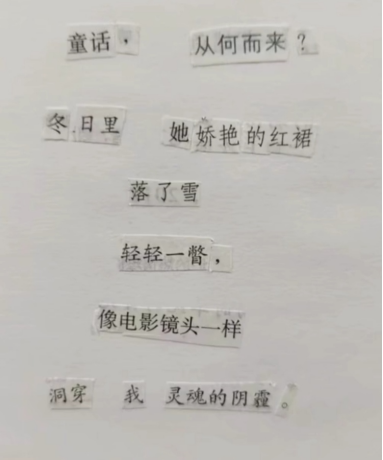 童话，从何而来？
冬日里 她娇艳的红裙
落了雪
轻轻一瞥，
像电影镜头一样
洞穿 我 灵魂的阴霾。